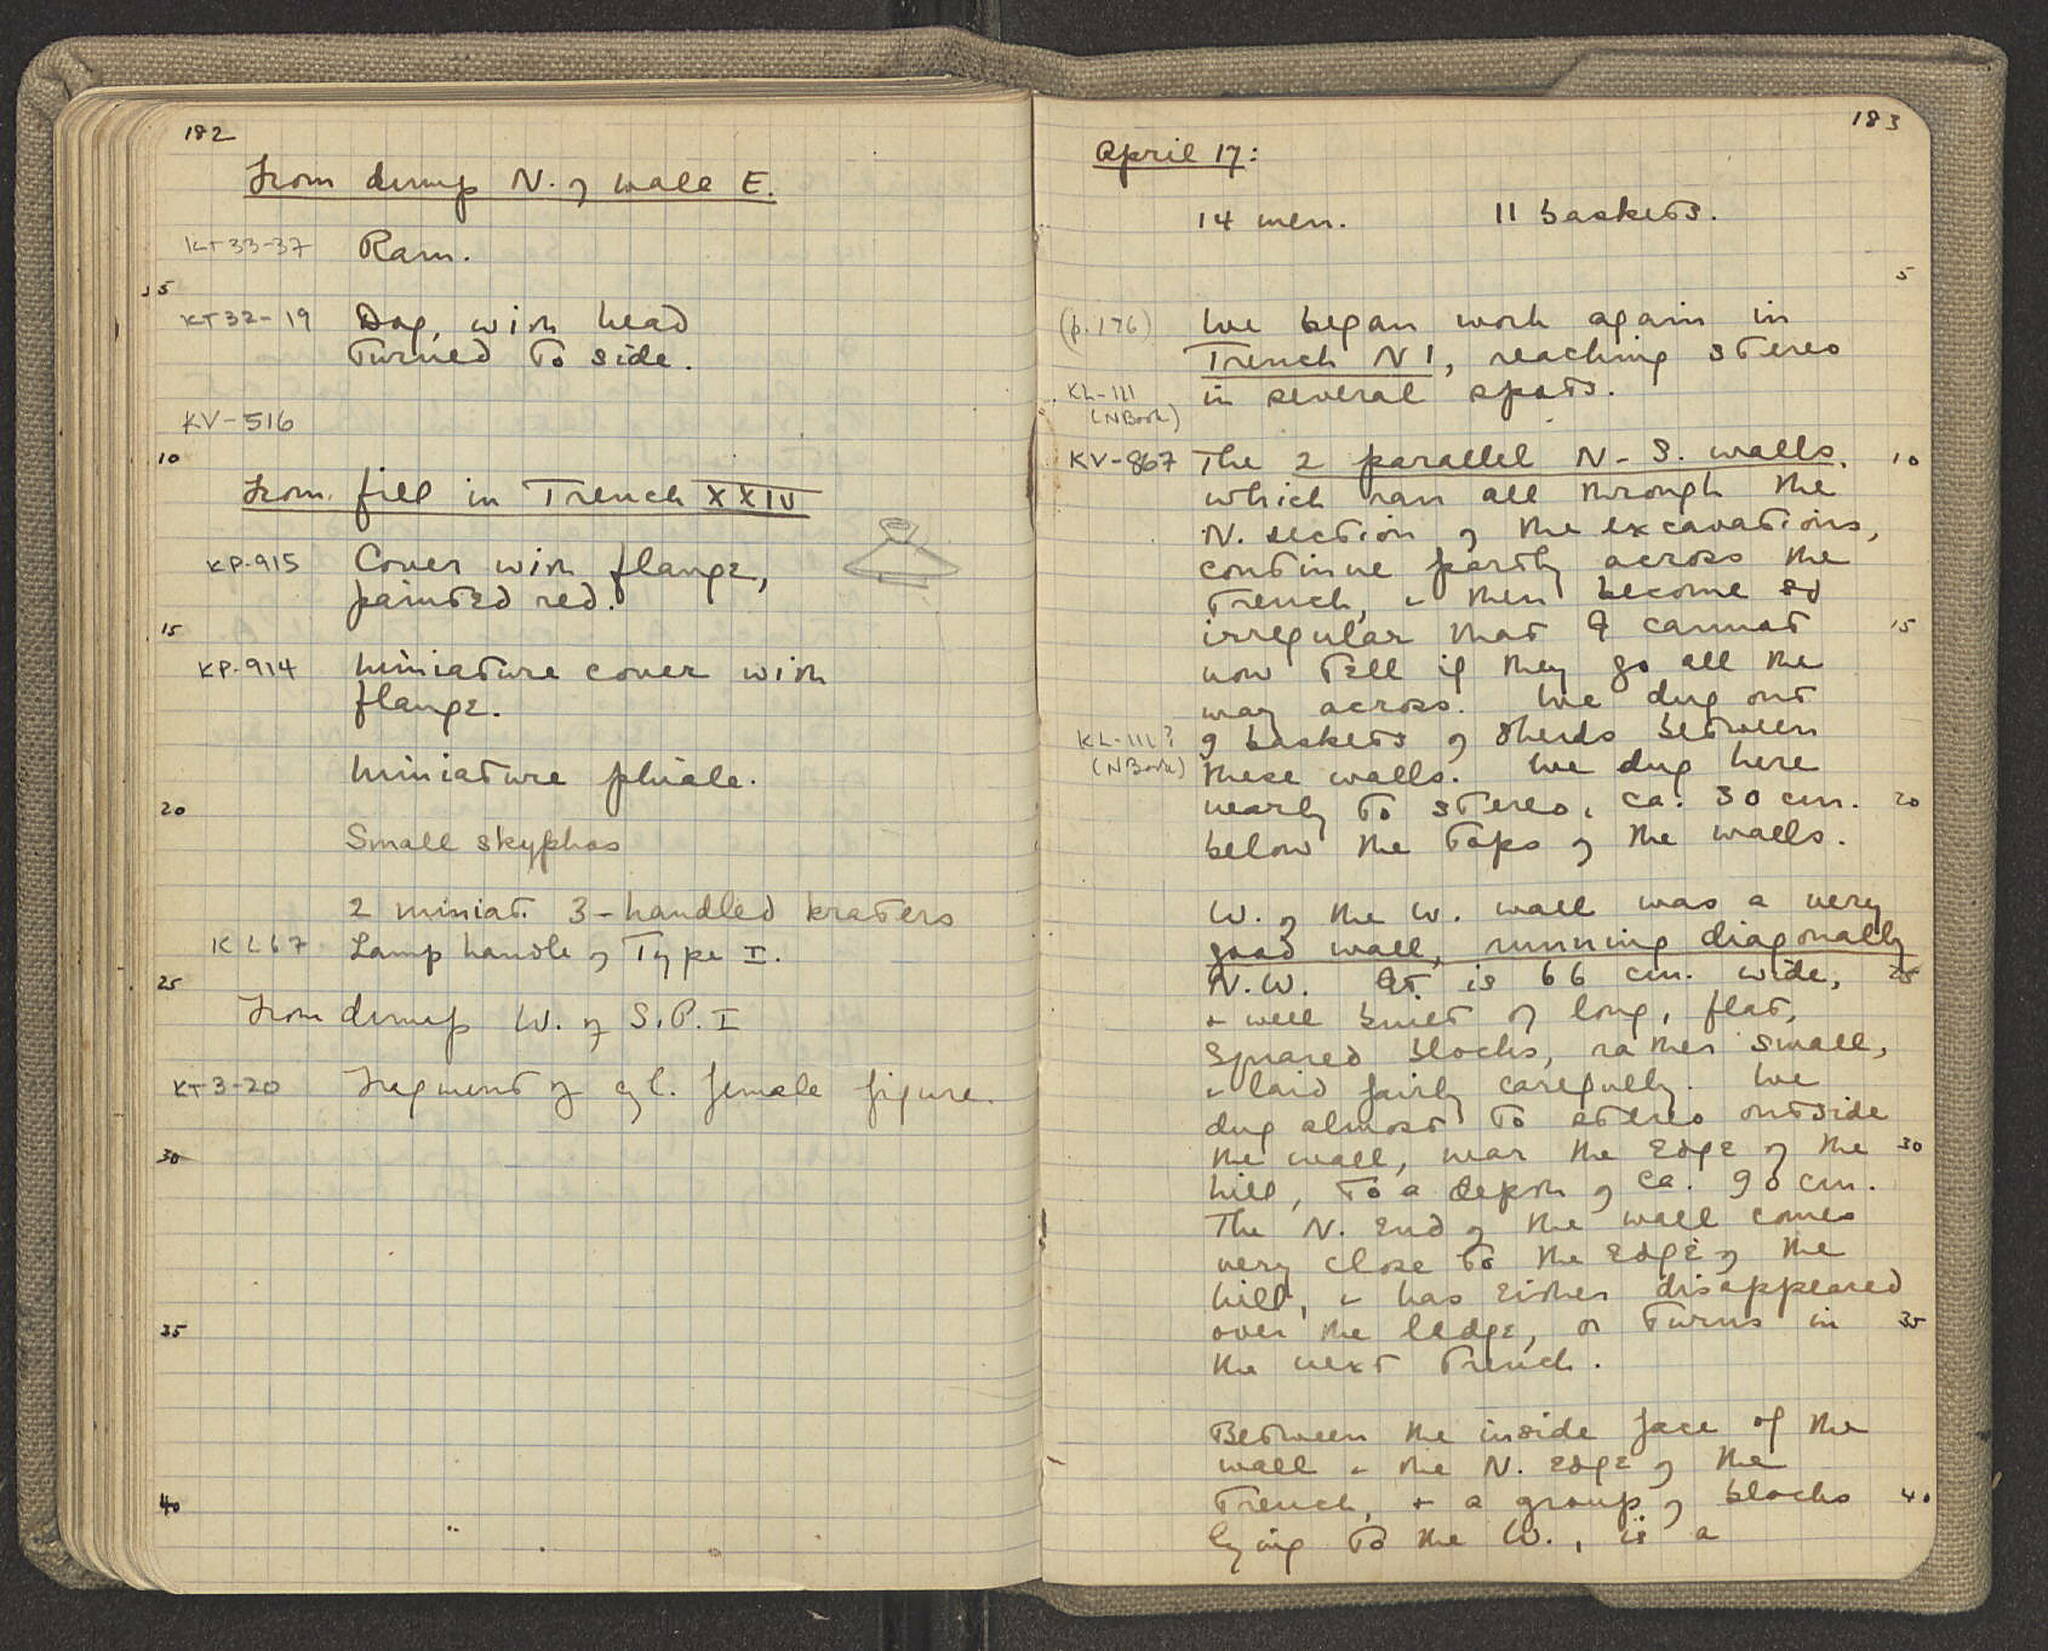 182
From dump N. of wall E.
KT33-37 Ram.
5
KT32-19 Dog, with head
turned to side.
KV-516
10
From fill in Trench XXIV
KP-915 Cover with flange,
painted red.
15
KP-914 Miniature cover with
flange.
Miniature phiale.
20
Small skyphos
2 miniat. 3-handled kraters
KL67 Lamp handle of Type I.
25
From dump W. of S.P. I
KT3-20 Fragment of cyl. female figure.
30
35
40
183
April 17:
14 men. 11 baskets.
5
(p. 176) We began work again in
Trench N1, reaching stereo
KL-111 in several spots.
(NBook)
KV-867 The 2 parallel N-S. walls, 10
which ran all through the
N. section of the excavations,
continue partly across the
trench, & then become so
irregular that I cannot 15
now tell if they go all the
way across. We dug out
KL-111? 9 baskets of sherds between
(NBook) these walls. We dug here
nearly to stereo, ca. 30 cm. 20
below the tops of the walls.
W. of the W. wall was a very
good wall, running diagonally
N.W. It is 66 cm. wide, 25
& well built of long, flat,
squared blocks, rather small,
& laid fairly carefully. We
dug almost to stereo outside
the wall, near the edge of the 30
hill, to a depth of ca. 90 cm.
The N. end of the wall comes
very close to the edge of the
hill, & has either disappeared
over the ledge, or turns in 35
the next trench.
Between the inside face of the
wall & the N. edge of the
trench, & a group of blocks 40
lying to the W., is a